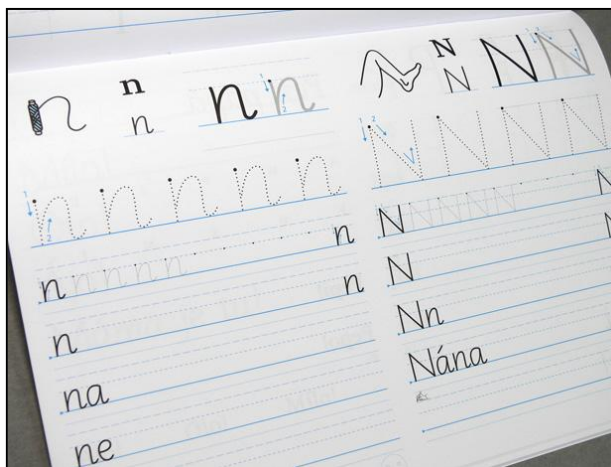 n n n n
n n n n n
n n n n n n
n n
na
ne
N N N N
N N N N
N N N N N N
N N
Nn
Nána